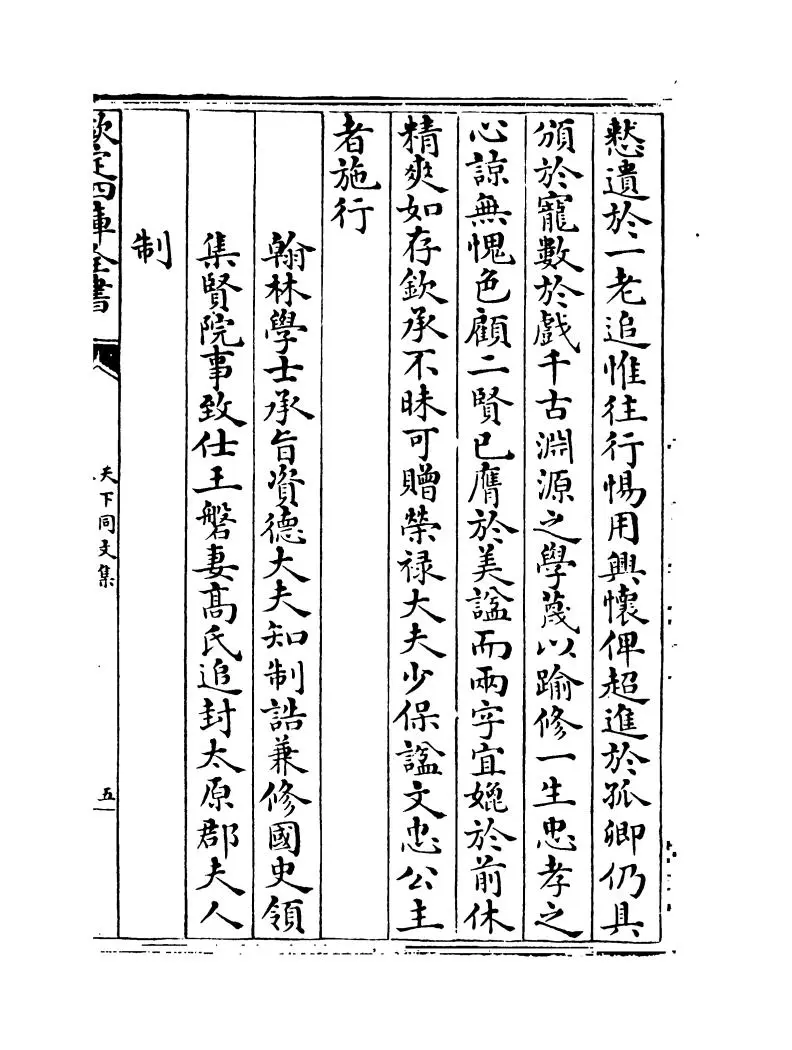 憖遺於一老追惟往行惕用興懷俾超進於孤卿仍具
頒於寵數於戲千古淵源之學蔑以踰修一生忠孝之
心諒無愧色顧二賢已膺於美諡而兩字宜孋於前休
精爽如存欽承不昧可贈榮禄大夫少保諡文忠公主
者施行
翰林學士承旨資德大夫知制誥兼修國史領
集賢院事致仕王磐妻髙氏追封太原郡夫人
制
欽定四庫全書
天下同文集
五